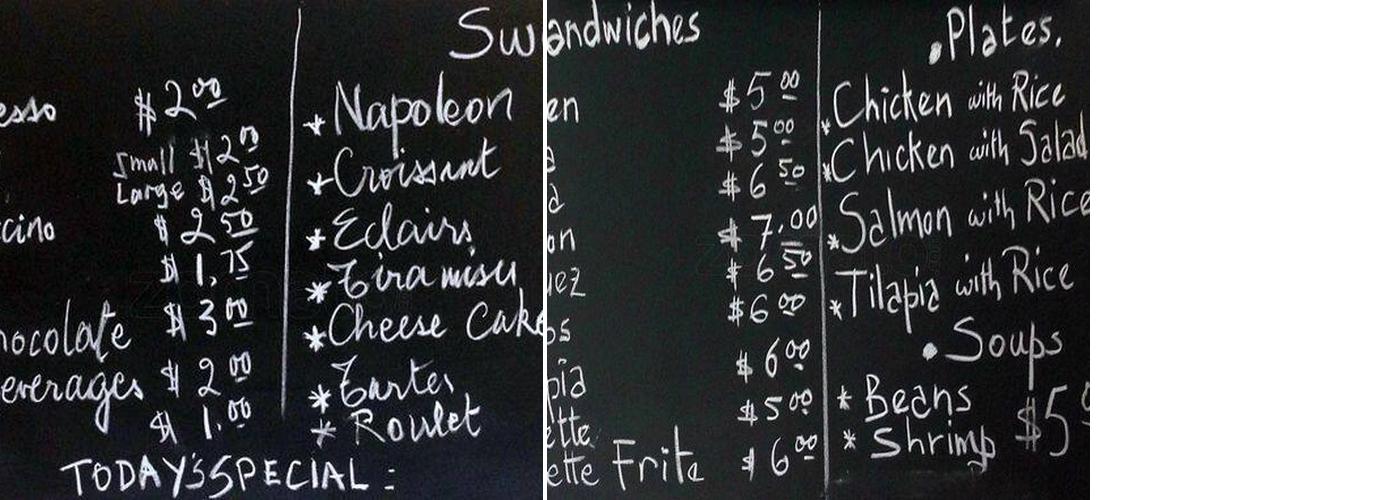 Sw
esso $2.00
Small $2.00
Large $2.50
cino $2.50
$1.75
hocolate $3.00
everages $2.00
$1.00
* Napoleon
* Croissant
* Eclairs
* Tiramisu
* Cheese Cake
* Tartes
* Roulet
TODAY'S SPECIAL :
andwiches
en $5.00
a $5.00
a $6.50
on $7.00
uez $6.50
os $6.00
pia $6.00
ette $5.00
ette Frite $6.00
• Plates.
* Chicken with Rice
* Chicken with Salad
* Salmon with Rice
* Tilapia with Rice
• Soups
* Beans
* Shrimp $5